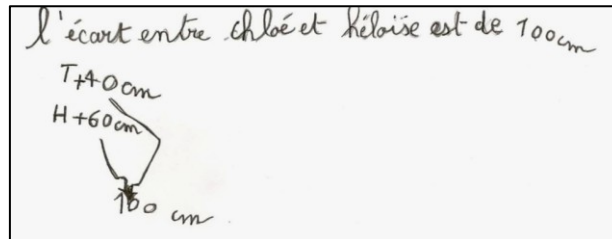 l'écart entre chloé et héloïse est de 100cm
T+40cm
H+60cm
100 cm